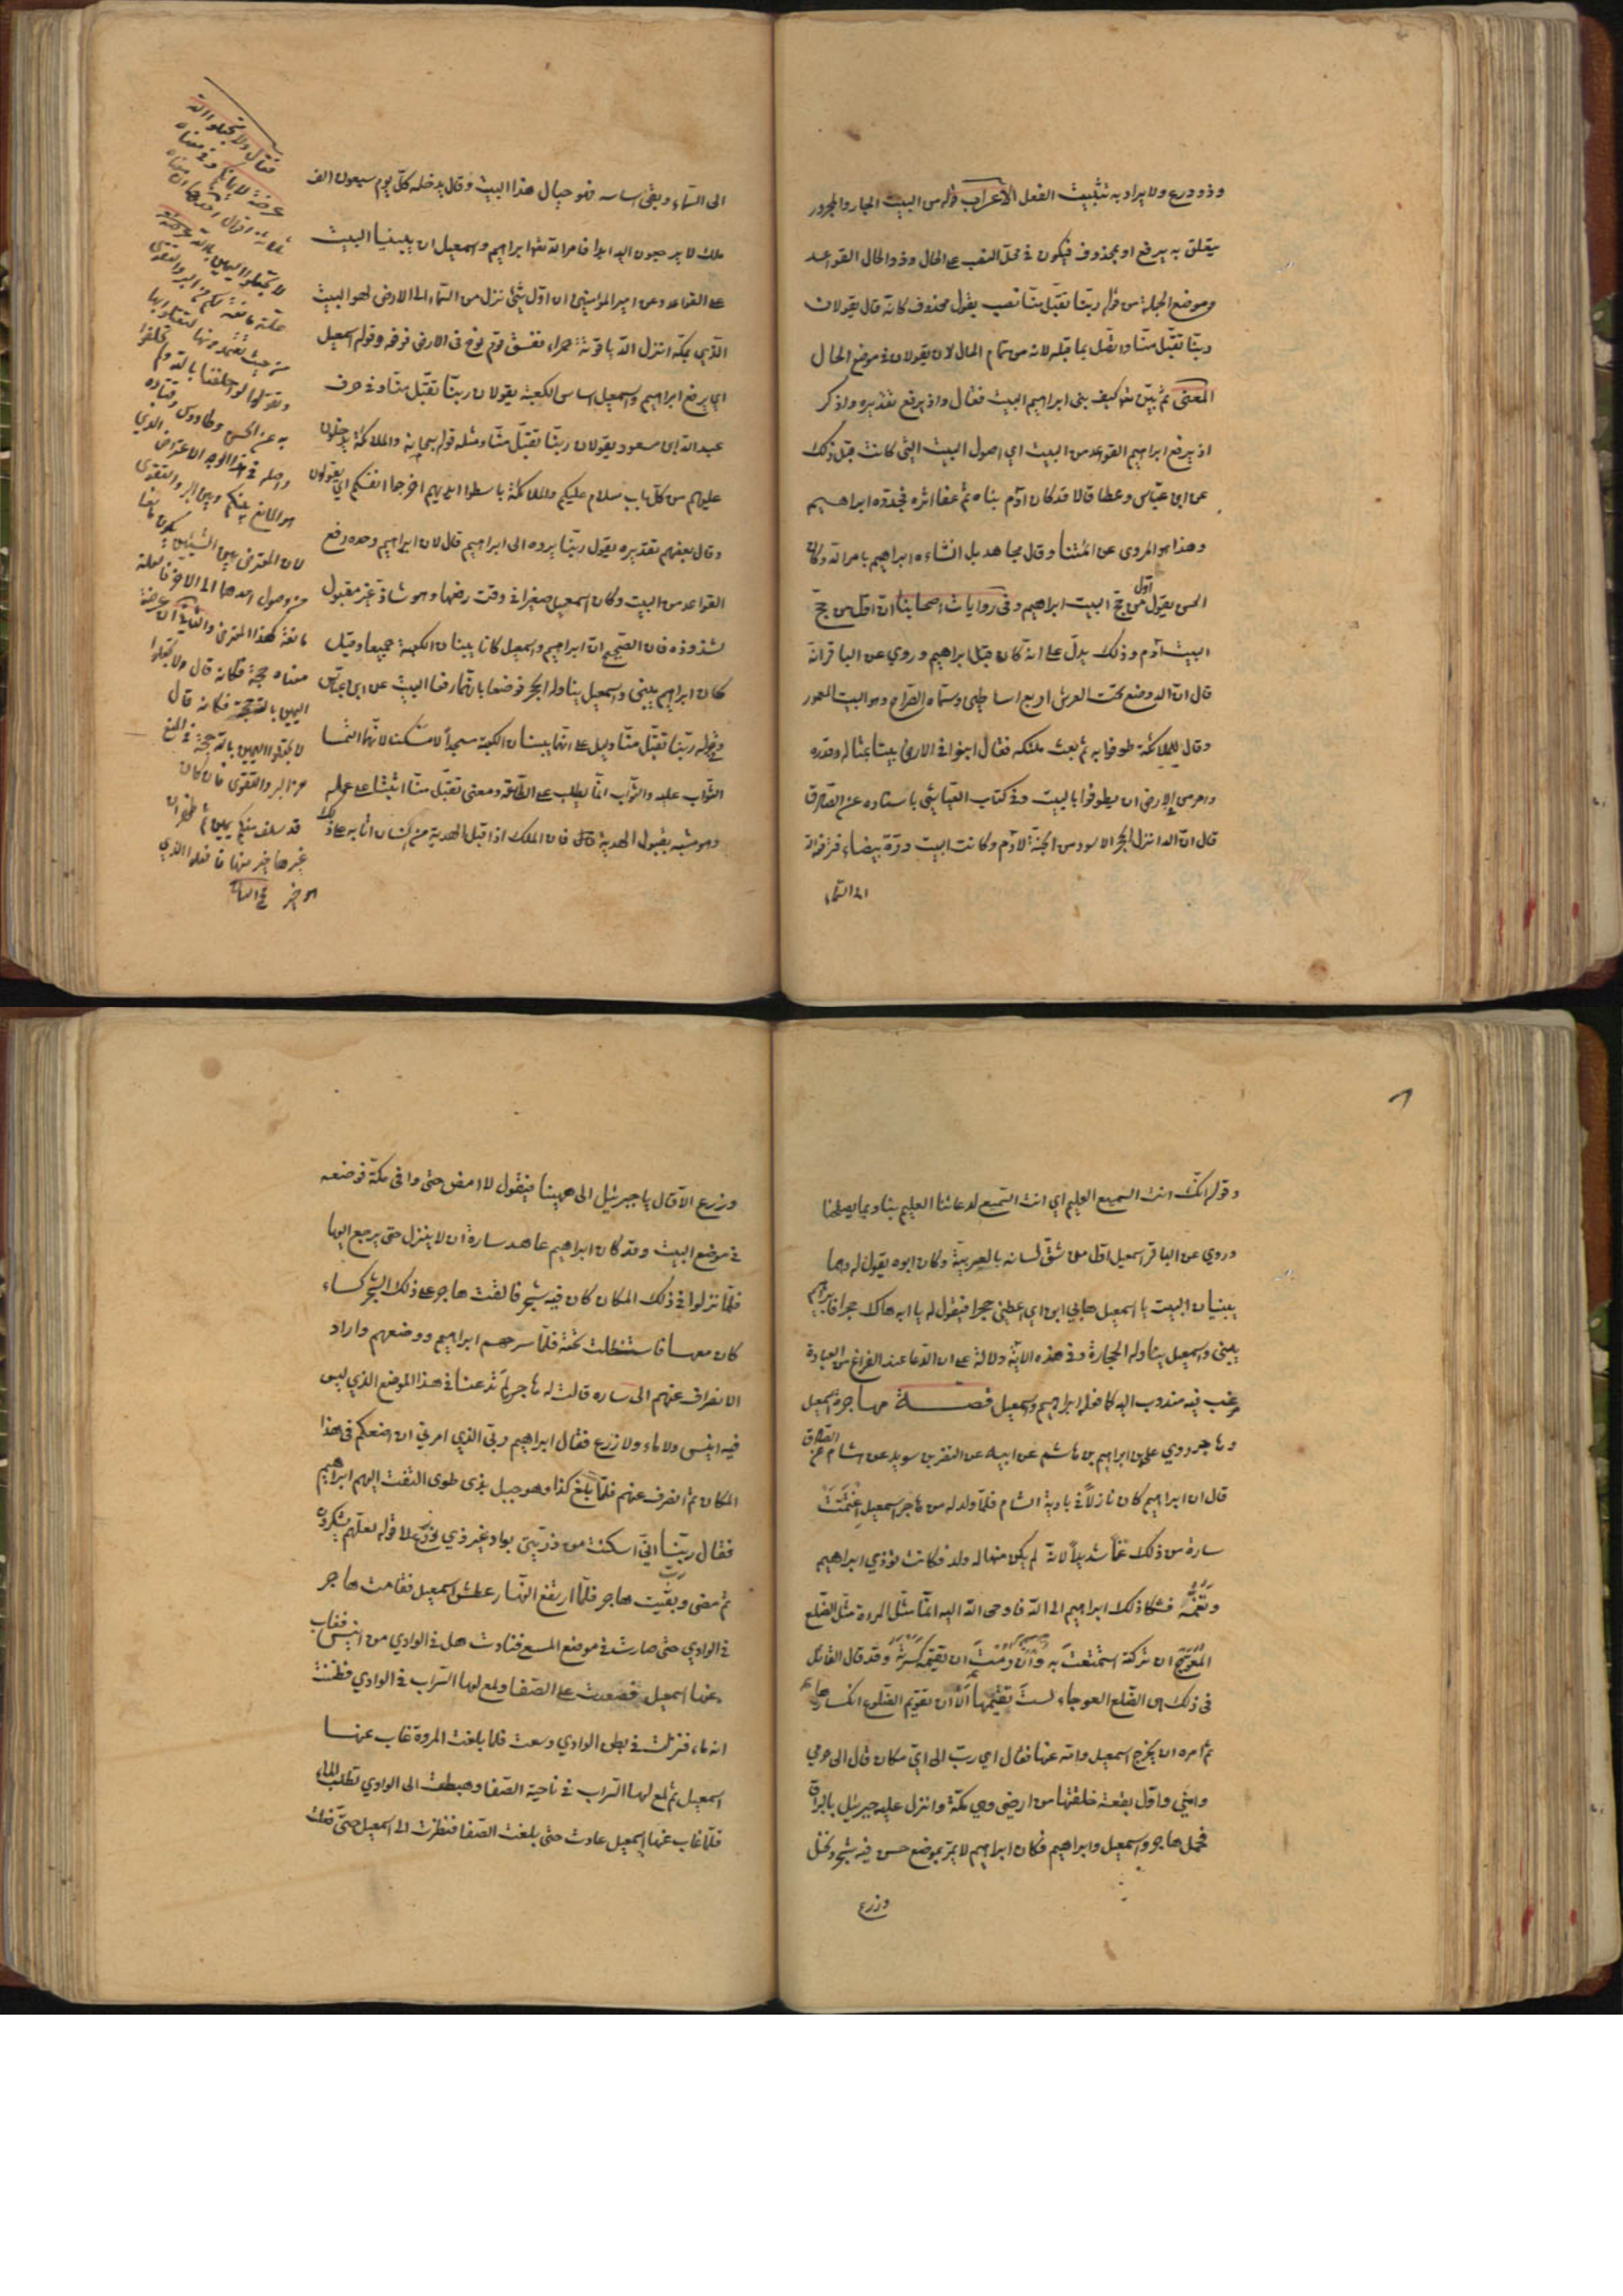 وذو ورع ولا يراد به تثبيت الفعل الاعراب قوله من البيت الجار والمجرور
يتعلق به يرفع او بمحذوف فيكون في محل النصب على الحال وذو الحال القواعد
وموضع الجملة من قوله ربنا تقبل منا نصب بقول محذوف كانه قال يقولان
ربنا تقبل منا واتصل بما قبله لانه من تمام الحال لان يقولان في موضع الحال
المعنى ثم بين تعا كيف بنى ابراهيم البيت فقال واذ يرفع تقديره واذكر
اذ يرفع ابراهيم القواعد من البيت اي اصول البيت التي كانت قبل ذلك
عن ابن عباس وعطا قالا قد كان آدم بناه ثم عفا اثره فجدده ابراهيم
وهذا هو المروى عن ائمتنا وقال مجاهد بل انشاءه ابراهيم بامر الله وكان
الحسن يقول اول من حج البيت ابراهيم وفي روايات اصحابنا ان اول من حج
البيت آدم وذلك يدل على انه كان قبل ابراهيم وروي عن الباقر انه
قال ان الله وضع تحت العرش اربع اساطين وسماه الضراح وهو البيت المعمور
وقال للملائكة طوفوا به ثم بعث ملئكة فقال ابنوا في الارض بيتا بمثاله وقدره
وامر من في الارض ان يطوفوا بالبيت وفي كتاب العياشي باسناده عن الصادق
قال ان الله انزل الحجر الاسود من الجنة لآدم وكانت البيت درة بيضاء فرفعه الله
الى السماء
الى السماء وبقي اساسه فهو حيال هذا البيت وقال يدخله كل يوم سبعون الف
ملك لا يرجعون اليه ابدا فامر الله تعا ابراهيم واسمعيل ان يبنيا البيت
على القواعد وعن امير المؤمنين ان اول شئ نزل من السماء الى الارض لهو البيت
الذي بمكة انزل الله ياقوتة حمراء ففسق قوم نوح في الارض فرفعه وقوله اسمعيل
اي يرفع ابراهيم واسمعيل اساس الكعبة يقولان ربنا تقبل منا وفي حرف
عبد الله ابن مسعود يقولان ربنا تقبل منا ومثله قوله سبحانه والملائكة يدخلون
عليهم من كل باب سلام عليكم والملائكة باسطوا ايديهم اخرجوا انفسكم اي يقولون
وقال بعضهم تقديره يقول ربنا يرده الى ابراهيم قال لان ابراهيم وحده رفع
القواعد من البيت وكان اسمعيل صغيرا في وقت رفعها وهو شاذ غير مقبول
لشذوذه فان الصحيح ان ابراهيم واسمعيل كانا يبنيان الكعبة جميعا وقيل
كان ابراهيم يبنى واسمعيل يناوله الحجر فوصفا بانهما رفعا البيت عن ابن عباس
وفي قوله ربنا تقبل منا دليل على انهما بنيا الكعبة مسجدا لا مسكنا لانهما التمسا
الثواب عليه والثواب انما يطلب على الطاعة ومعنى تقبل منا اثبنا على عمله
وهو مشبه بقبول الهدية فان الملك اذا قبل الهدية من انسان اثابه على ذلك
فقال ولا تجعلوا الله
عرضة لايمانكم وفي معناه
ثلثة اقوال احدها ان معناه
لا تجعلوا اليمين بالله
علة مانعة لكم من البر والتقوى
من حيث تتعمدونها لتعتلوا بها
وتقولوا لو حلفنا بالله ولم تحلفوا
به عن الحسن وطاووس وقتادة
واصله في هذا الوجه الاعتراض الذي
هو المانع بينكم وبين البر والتقوى
لان المعترض بين الشيئين يكون مانعا
من وصول احدهما الى الاخر فالعلة
مانعة كهذا المعترض والثاني ان عرضة
معناه حجة فكانه قال ولا تجعلوا
اليمين بالله حجة فكانه قال
لا تجعلوا اليمين بالله حجة في المنع
من البر والتقوى فان كان
قد سلف منكم يمين ثم ظهر ان
غيرها خير منها فافعلوا الذي
هو خير
وقوله انك انت السميع العليم اي انت السميع لدعائنا العليم بنا وبما يصلحنا
وروي عن الباقر اسمعيل اول من شق لسانه بالعربية وكان ابوه يقول له وهما
يبنيان البيت يا اسمعيل هابي ابن اي اعطني حجرا فيقول له يا ابه هاك حجرا فابراهيم
يبنى واسمعيل يناوله الحجارة وفي هذه الاية دلالة على ان الدعا عند الفراغ من العبادة
مرغب فيه مندوب اليه كما فعله ابراهيم واسمعيل قصة مهاجرة اسمعيل
وهاجر روي علي بن ابراهيم بن هاشم عن ابيه عن النضر بن سويد عن هشام عن الصادق
قال ان ابراهيم كان نازلا في بادية الشام فلما ولد له من هاجر اسمعيل اغتمت
سارة من ذلك غما شديدا لانه لم يكن منها له ولد فكانت تؤذي ابراهيم
وتغمه فشكا ذلك ابراهيم الى الله فاوحى الله اليه انما مثل المرءة مثل الضلع
المعوج ان تركته استمتعت به وان رمت ان تقيمه كسرته وقد قال القائل
في ذلك هي الضلع العوجاء لست تقيمها الا ان تقويم الضلوع انكسارها
ثم امره ان يخرج اسمعيل وامه عنها فقال اي رب الى اي مكان قال الى حرمي
وامني واول بقعة خلقتها من ارضي وهي مكة وانزل عليه جبرئيل بالبراق
فحمل هاجر واسمعيل وابراهيم فكان ابراهيم لا يمر بموضع حسن فيه شجر ونخل
وزرع
وزرع الا قال يا جبرئيل الى ههنا فيقول لا امض حتى وافى مكة فوضعه
في موضع البيت وقد كان ابراهيم عاهد سارة ان لا ينزل حتى يرجع اليها
فلما نزلوا في ذلك المكان كان فيه شجر فالقت هاجر على ذلك الشجر كساء
كان معها فاستظلت تحته فلما سرحهم ابراهيم ووضعهم واراد
الانصراف عنهم الى ساره قالت له هاجر لم تدعنا في هذا الموضع الذي ليس
فيه انيس ولا ماء ولا زرع فقال ابراهيم ربي الذي امرني ان اضعكم في هذا
المكان ثم انصرف عنهم فلما بلغ كذا وهو جبل بذي طوى التفت اليهم ابراهيم
فقال ربنا اني اسكنت من ذريتي بواد غير ذي زرع الى قوله لعلهم يشكرون
ثم مضى وبقيت هاجر فلما ارتفع النهار عطش اسمعيل فقامت هاجر
في الوادي حتى صارت في موضع المسعى فنادت هل في الوادي من انيس فغاب
عنها اسمعيل فصعدت على الصفا ولمع لها السراب في الوادي فظننت
انه ماء فنزلت في بطن الوادي وسعت فلما بلغت المروة غاب عنها
اسمعيل ثم لمع لها السراب في ناحية الصفا وهبطت الى الوادي تطلب الماء
فلما غاب عنها اسمعيل عادت حتى بلغت الصفا فنظرت الى اسمعيل حتى فعلت